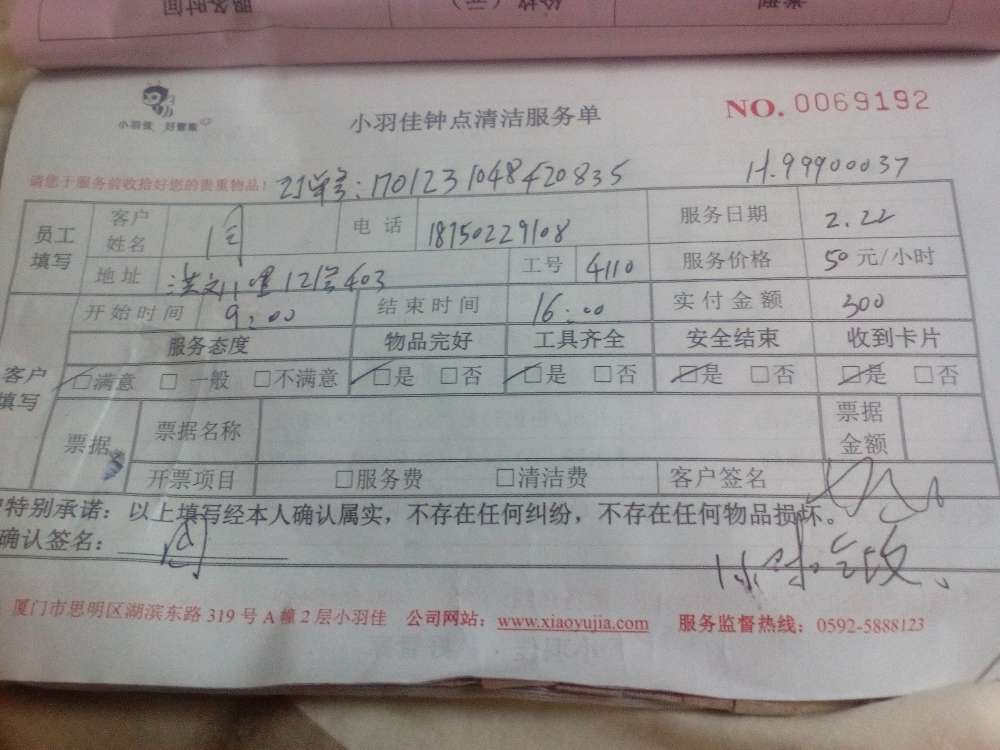 服务时间
小羽佳 好管家
小羽佳钟点清洁服务单
NO.0069192
请您于服务前收拾好您的贵重物品!
订单号:1701231048420835
H.99900037
员工填写 客户姓名 电话 18750229108 服务日期 2.22
地址 121号403 工号 4110 服务价格 50元/小时
客户填写 开始时间 9:00 结束时间 16:00 实付金额 300
服务态度 物品完好 工具齐全 安全结束 收到卡片
□满意 □一般 □不满意 □是 □否 □是 □否 □是 □否 □是 □否
票据 票据名称 票据金额
开票项目 □服务费 □清洁费 客户签名
特别承诺:以上填写经本人确认属实,不存在任何纠纷,不存在任何物品损坏。
确认签名:
厦门市思明区湖滨东路 319 号 A 幢 2 层小羽佳 公司网站:www.xiaoyujia.com 服务监督热线:0592-5888123